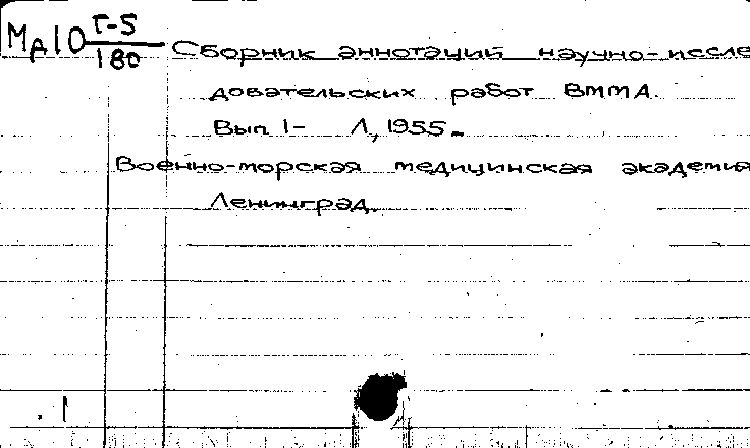 Мд10 Г-5
180
Сборник аннотаций научно-иссле
довательских работ ВММА.
Вып 1- Л., 1955-
Военно-морская медицинская академия
Ленинград.
1